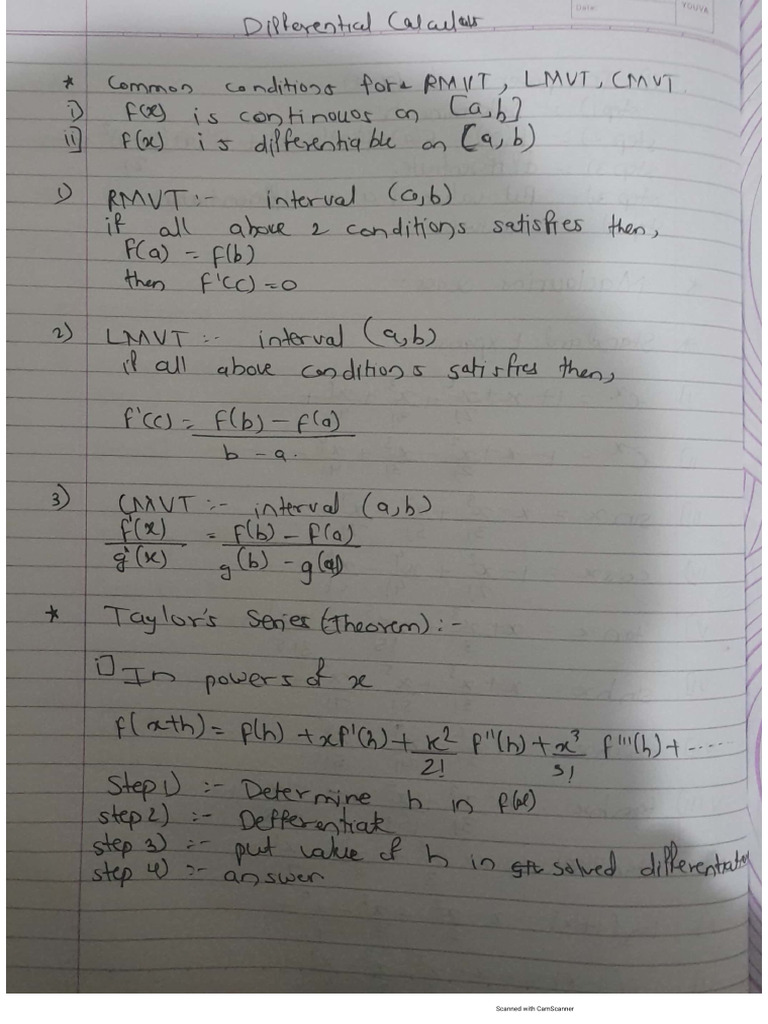 Date:
YOUVA
Differential Calculus
* Common conditions for :- RMVT, LMVT, CMVT
i) f(x) is continuos on [a,b]
ii) f(x) is differentiable on [a,b)
1) RMVT :- interval (a,b)
if all above 2 conditions satisfies then,
f(a) = f(b)
then f'(c) = 0
2) LMVT :- interval (a,b)
if all above conditions satisfies then,
f'(c) = f(b) - f(a)
b - a.
3) CMVT :- interval (a,b)
f'(x) = f(b) - f(a)
g'(x) g(b) - g(a)
* Taylor's Series (Theorem) :-
i) In powers of x
f(x+h) = f(h) + xf'(h) + x² f''(h) + x³ f'''(h) + ......
2! 3!
Step 1) :- Determine h in f(x)
step 2) :- Defferentiate
step 3) :- put value of h in solved differentiate
step 4) :- answer
Scanned with CamScanner